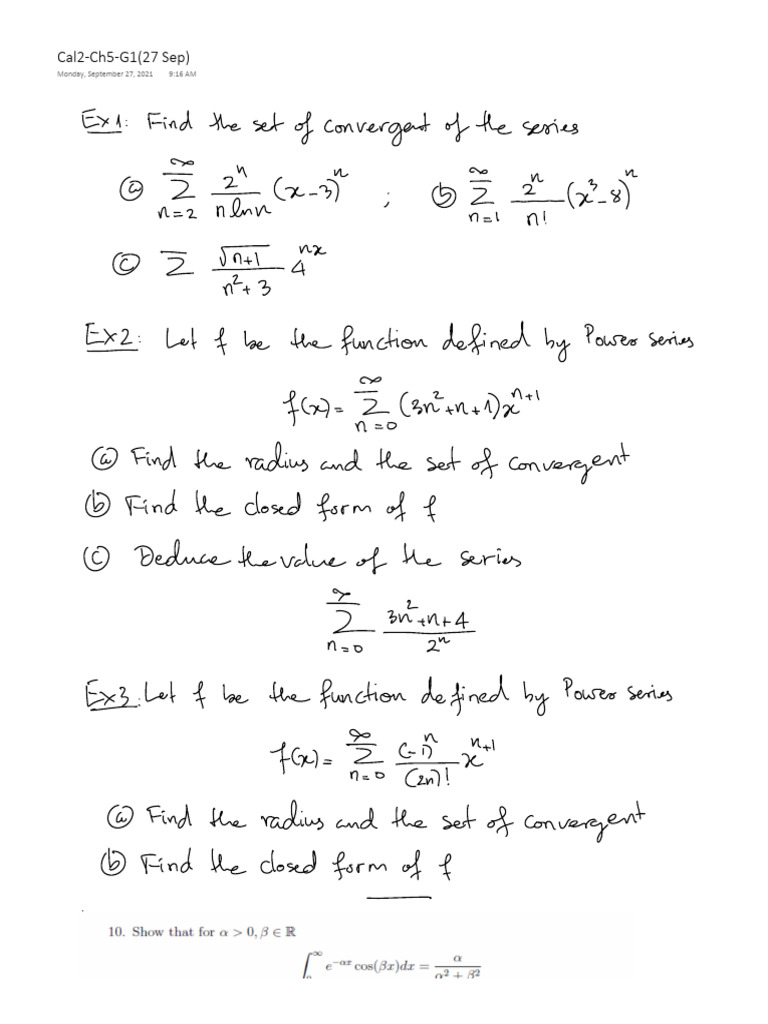 Cal2-Ch5-G1(27 Sep)
Monday, September 27, 2021 9:16 AM
Ex1: Find the set of convergent of the series
ⓐ ∑_{n=2}^{∞} \frac{2^n}{n ln n} (x-3)^n ; ⓑ ∑_{n=1}^{∞} \frac{2^n}{n!} (x^3-8)^n
ⓒ ∑ \frac{√(n+1)}{n^2+3} 4^{nx}
Ex2: Let f be the function defined by Power series
f(x) = ∑_{n=0}^{∞} (3n^2+n+1)x^{n+1}
ⓐ Find the radius and the set of convergent
ⓑ Find the closed form of f
ⓒ Deduce the value of the series
∑_{n=0}^{∞} \frac{3n^2+n+4}{2^n}
Ex3: Let f be the function defined by Power series
f(x) = ∑_{n=0}^{∞} \frac{(-1)^n}{(2n)!} x^{n+1}
ⓐ Find the radius and the set of convergent
ⓑ Find the closed form of f
10. Show that for α > 0, β ∈ ℝ
∫_0^∞ e^{-αx} cos(βx)dx = \frac{α}{α^2 + β^2}